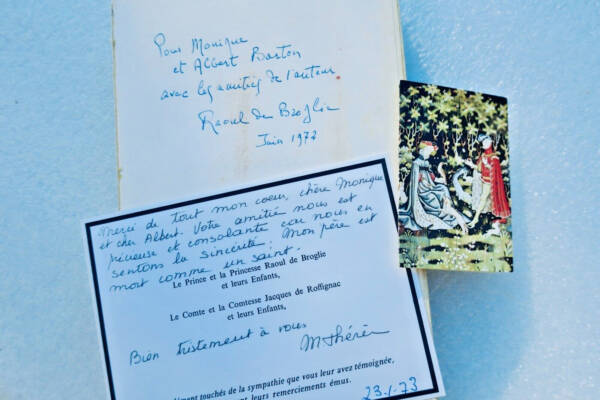 Pour Monique
et Albert Barton
avec les amitiés de l'auteur
Raoul de Broglie
Juin 1972
Merci de tout mon coeur, chère Monique
et cher Albert. Votre amitié nous est
précieuse et consolante car nous en
sentons la sincérité. Mon père est
mort comme un saint.
Le Prince et la Princesse Raoul de Broglie
et leurs Enfants,
Le Comte et la Comtesse Jacques de Roffignac
et leurs Enfants,
Bien tristement à vous
MThérèse
touchés de la sympathie que vous leur avez témoignée,
leurs remerciements émus.
23.1.73